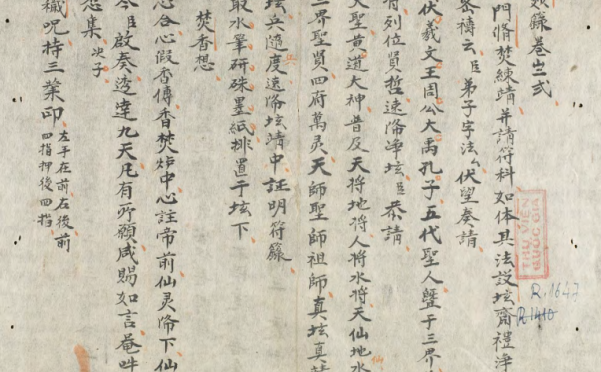 籙卷之弍
門脩焚練靖并請符科如体具法設坛齋禮淨
密禱云臣弟子字法厶伏望奏請
伏羲文王周公大禹孔子五代聖人曁于三界
有列位賢哲速降净坛臣恭請
大聖黄道大神普及天将地将人将水将天仙地水
三界聖賢四府萬灵天師聖師祖師真坛真
坛兵隨度速降坛靖中証明符籙
取水筆研硃墨紙排置于坛下
焚香想
心合心假香傳香焚炉中心註帝前仙灵降下仙
今臣啟奏逵達九天凡有所願咸賜如言菴吽
想集次子
穢呪持三業印左手在前右後前四指押後四指
THƯ VIỆN QUỐC GIA
R.1647
R.1410
仙